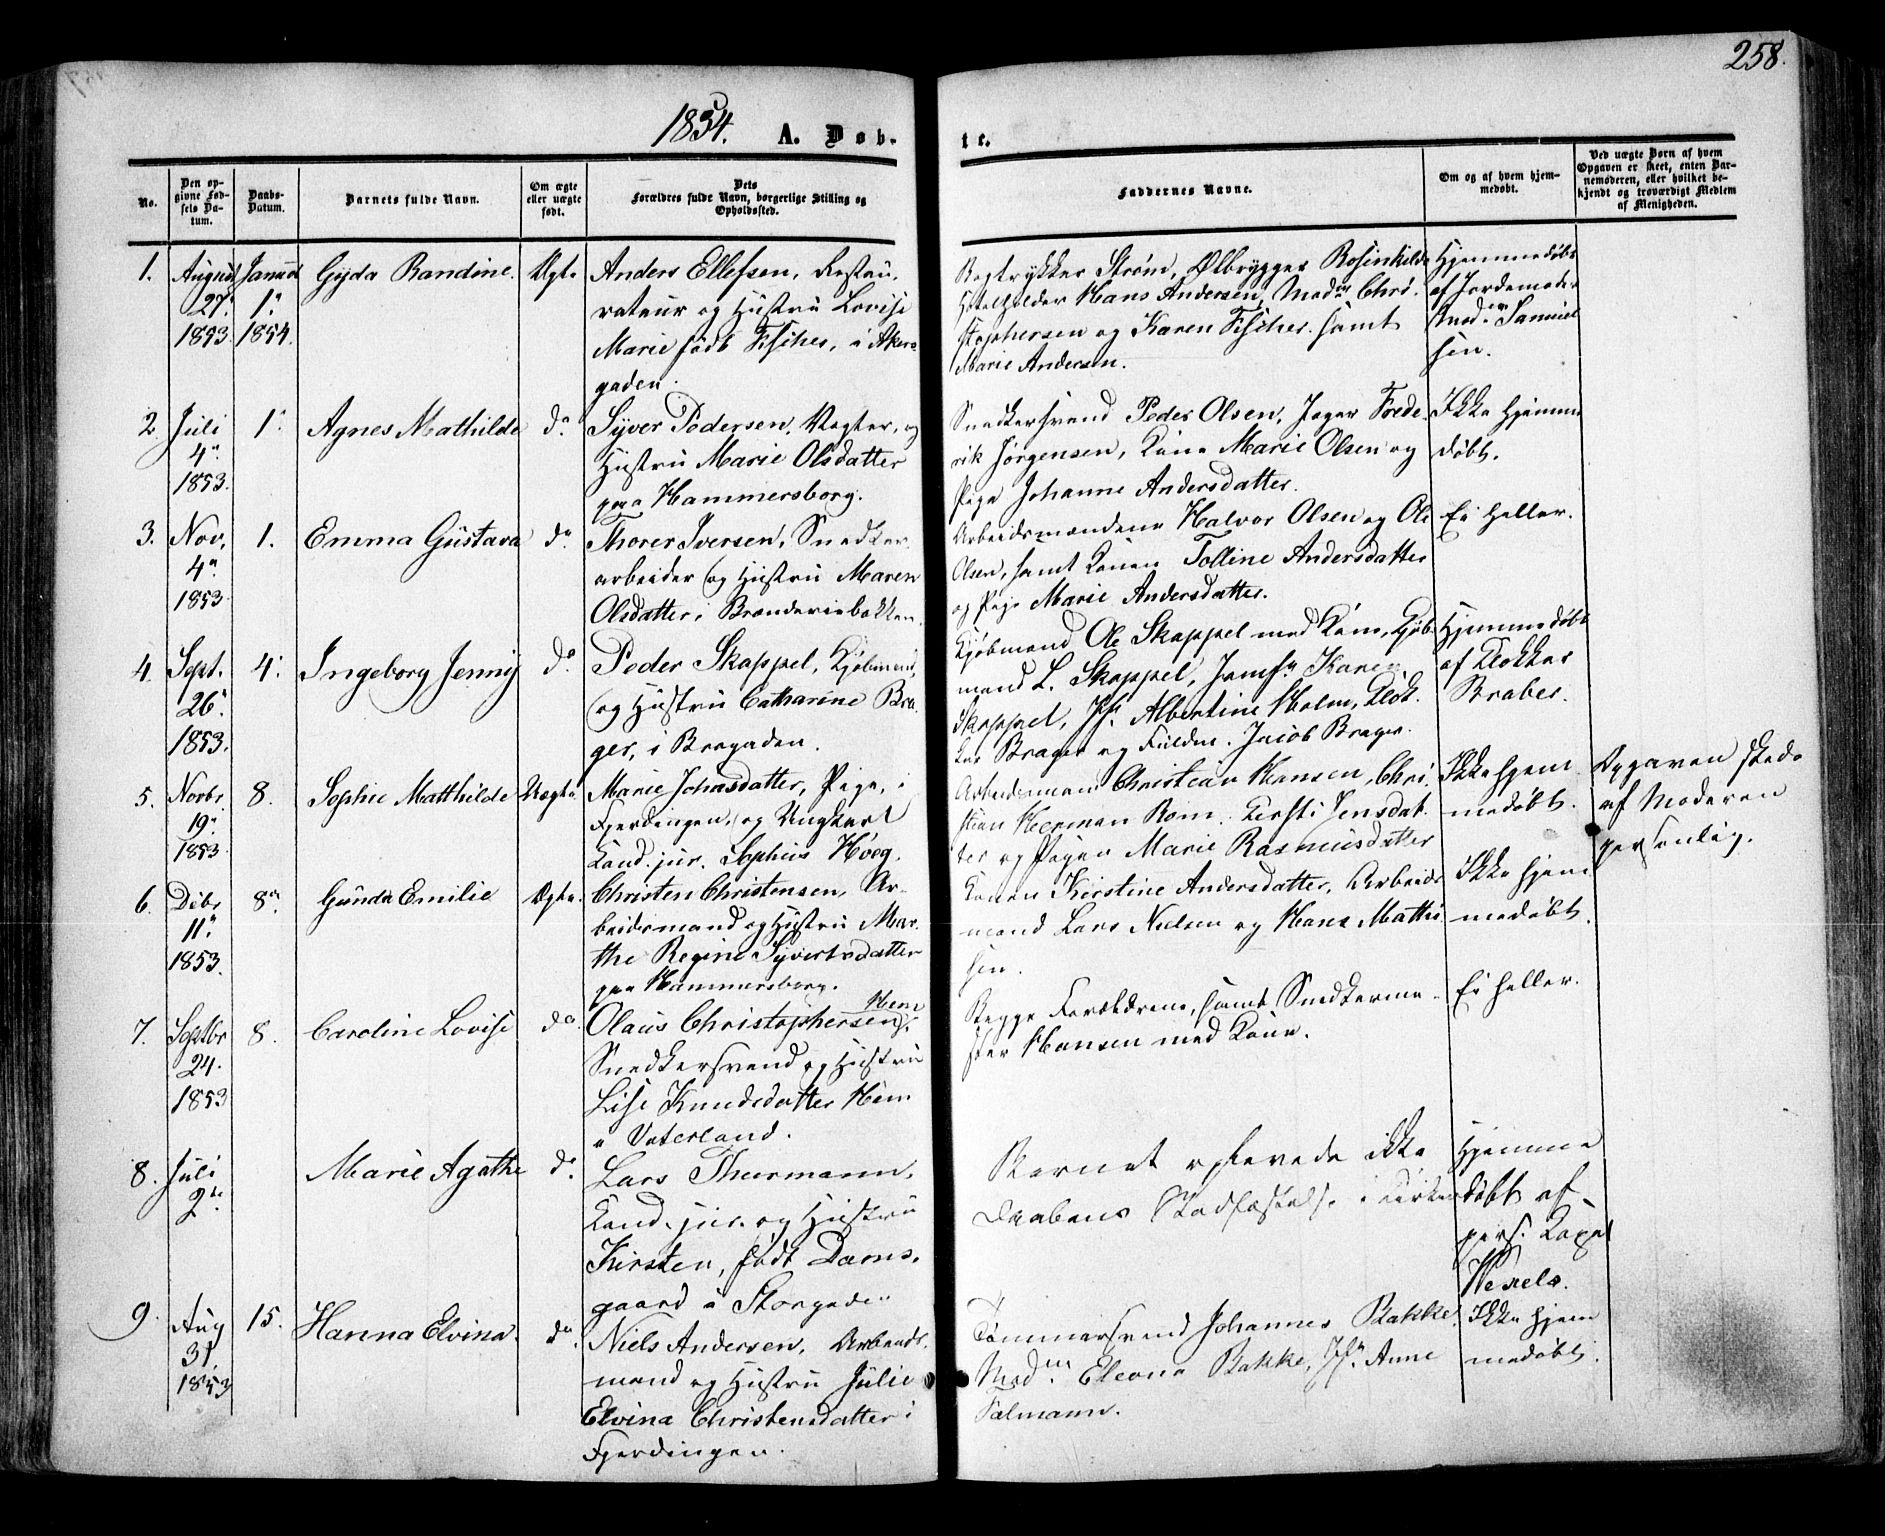 258.
1854. A. Døb-
te.
No.
Den op-
givne Fød-
sels Da-
tum.
Daabs-
Datum.
Barnets fulde Navn.
Om ægte
eller uægte
født.
Dets
Forældres fulde Navn, borgerlige Stilling og
Opholdssted.
Faddernes Navne.
Om og af hvem hjem-
medøbt.
Ved uægte Børn af hvem
Opgaven er skeet, enten Bar-
nemoderen, eller hvilket be-
kjendt og troværdigt Medlem
af Menigheden.
1.
August
27.
1853.
Januar
1.
1854.
Gyda Randine.
Ægte
Anders Ellefsen, Restau-
rateur og Hustru Lovise
Marie født Fischer, i Akers-
gaden.
Bogtrykker Strøm, Ølbrygger Rosinkilde
Hotelholder Hans Andersen, Mad. Chri-
stophersen og Karen Fischer samt
Marie Andersen.
Hjemmedøbt
af Jordemoder
Mad. Samuel
sen.
2
Juli
4.
1853.
1.
Agnes Mathilde
do.
Syver Pedersen, Vægter, og
Hustru Marie Olsdatter
paa Hammersborg.
Snedkersvend Peder Olsen, Jæger Frede-
rik Jørgensen, Kone Marie Olsen og
Pige Johanne Andersdatter.
Ikke hjemme
døbt.
3.
Nov.
4.
1853
1.
Emma Gustava
do.
Thorer Iversen, Snedker
arbeider og Hustru Maren
Olsdatter i Brænderiebakken.
Arbeidsmændene Halvor Olsen og Ole
Olsen, samt Konen Tolline Andersdatter
og Pige Marie Andersdatter.
Ei heller.
4.
Sept.
26.
1853.
4.
Ingeborg Jenny
do
Peder Skappel, Kjøbmand,
og Hustru Catharine Bra-
ger, i Brogaden.
Kjøbmand Ole Skappel med Kone, Kjøb-
mand L. Skappel, Jomf. Karen
Skappel, Jf. Albertine Holm, Klok-
ker Brager og Fuldm. Jacob Brager.
Hjemmedøbt
af Klokker
Brager.
5.
Novbr
19.
1853.
8.
Sophie Matthilde
Uægte
Marie Johnsdatter, Pige, i
Fjerdingen, og Ungkarl
Cand. jur. Sophus Høeg.
Arbeidsmand Christian Hansen, Chri-
stian Herman Rom, Kersti Jensdat-
ter og Pigen Marie Rasmusdatter
Ikke hjem
medøbt.
Opgaven skede
af Moderen
personlig.
6.
Dcbr
11.
1853.
8.
Gunda Emilie
Ægte.
Christen Christensen, Ar-
beidsmand og Hustru Mar-
the Regine Syvertsdatter
paa Hammersborg.
Konen Kirstine Andersdatter, Arbeids
mand Lars Nielsen og Hans Mathi
sen.
Ikke hjem
medøbt.
7.
Septbr
24.
1853
8.
Caroline Lovise
do.
Olaus Christophersen Hem
Snedkersvend og Hustru
Lise Knudsdatter Hem
i Vaterland.
Begge Forældrene, samt Snedkerme-
ster Hansen med Kone.
Ei heller.
8.
Juli
2.
Marie Agathe
do.
Lars Thurmann,
Cand. jur. og Hustru
Kirsten, født Dams-
gaard i Storgaden
Barnet oplevede ikke
Daabens Stadfæstelse i Kirken
Hjemme
døbt af
pers. Kapel
Wexels.
9.
Aug
31
1853
15.
Hanna Elvina.
do.
Niels Andersen, Arbeids-
mand og Hustru Julie
Elvina Christensdatter i
Fjerdingen.
Tømmersvend Johannes Bakke,
Mad. Eleona Bakke, Jf. Anne
Salmann.
Ikke hjem
medøbt.